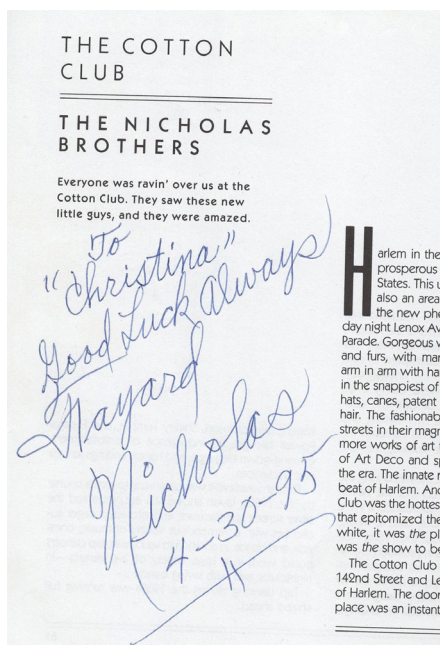 THE COTTON
CLUB
THE NICHOLAS
BROTHERS
Everyone was ravin' over us at the
Cotton Club. They saw these new
little guys, and they were amazed.
To
"Christina"
Good Luck Always
Fayard
Nicholas
4-30-95
Harlem in the
prosperous
States. This
also an area
the new
day night Lenox
Parade. Gorgeous
and furs, with
arm in arm with
in the snappiest of
hats, canes, patent
hair. The
streets in their
more works of art
of Art Deco and
the era. The innate
beat of Harlem.
Club was the
that epitomized the
white, it was the
was the show to
The Cotton Club
142nd Street and
of Harlem. The
place was an instant